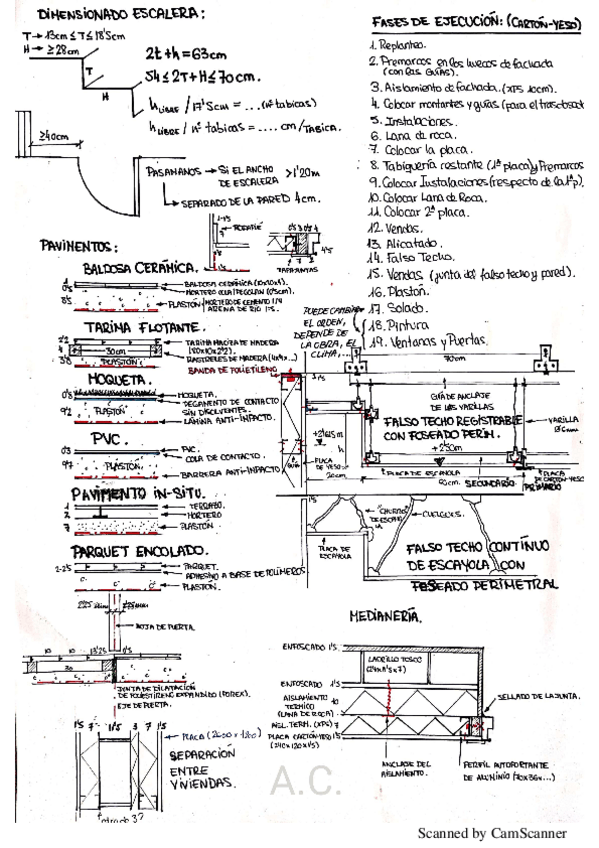 DIMENSIONADO ESCALERA:
T → 13cm ≤ T ≤ 18'5cm
H → ≥ 28cm
T
H
2t+h = 63cm
54 ≤ 2T+H ≤ 70cm.
h LIBRE / 17'5cm = ... (nº tabicas)
h LIBRE / nº tabicas = .... cm/TABICA.
≥40cm
PASAMANOS → SI EL ANCHO DE ESCALERA >1'20m
SEPARADO DE LA PARED 4cm.
FASES DE EJECUCIÓN: (CARTÓN-YESO)
1. Replanteo.
2. Premarcos en los huecos de fachada
(con las GUÍAS).
3. Aislamiento de fachada. (XPS 10cm)
4. Colocar montantes y guías (para el trasdosado
5. Instalaciones.
6. Lana de roca.
7. Colocar la placa.
8. Tabiquería restante (1ª placa) y Premarcos
9. Colocar Instalaciones (respecto de la 1ª p).
10. Colocar Lana de Roca.
11. Colocar 2ª placa.
12. Vendas.
13. Alicatado.
14. Falso Techo.
15. Vendas (junta del falso techo y pared).
16. Plastón.
17. Solado.
18. Pintura
19. Ventanas y Puertas.
PUEDE CAMBIAR
EL ORDEN,
DEPENDE DE
LA OBRA, EL
CLIMA,...
RODAPIÉ
TAPAJUNTAS
PAVIMENTOS:
BALDOSA CERÁMICA.
PLASTÓN
TARIMA FLOTANTE.
30cm
TARIMA MACIZA DE MADERA
RASTRELES DE MADERA
PLASTÓN
BANDA DE POLIETILENO
MOQUETA.
MOQUETA.
PEGAMENTO DE CONTACTO
SIN DISOLVENTES.
LÁMINA ANTI-IMPACTO.
PLASTÓN
PVC.
PVC.
COLA DE CONTACTO.
PLASTÓN.
BARRERA ANTI-IMPACTO
PAVIMENTO IN-SITU.
TERRAZO.
MORTERO
PLASTÓN
PARQUET ENCOLADO.
PARQUET.
ADHESIVO A BASE DE POLÍMEROS
PLASTÓN.
HOJA DE PUERTA.
JUNTA DE DILATACIÓN
DE POLIESTIRENO EXPANDIDO (POREX).
EJE DE PUERTA.
PLACA
SEPARACIÓN
ENTRE
VIVIENDAS.
70cm
GUÍA DE ANCLAJE
DE LAS VARILLAS
FALSO TECHO REGISTRABLE
CON FOSEADO PERIM.
VARILLA
PLACA
DE YESO
20cm
PLACA DE ESCAYOLA
SECUNDARIO
PRIMARIO
PLACA
DE CARTÓN-YESO
CUELGUES.
PLACA DE
ESCAYOLA
FALSO TECHO CONTÍNUO
DE ESCAYOLA CON
FOSEADO PERIMETRAL
MEDIANERÍA.
ENFOSCADO 1'5
LADRILLO TOSCO
ENFOSCADO 1'5
AISLAMIENTO
TÉRMICO
(LANA DE ROCA)
10
AISL. TERM. (XPS) 7
PLACA CARTÓN-YESO 1'5
SELLADO DE LA JUNTA.
ANCLAJE DEL
AISLAMIENTO.
PERFIL AUTOPORTANTE
DE ALUMINIO
A.C.
Scanned by CamScanner